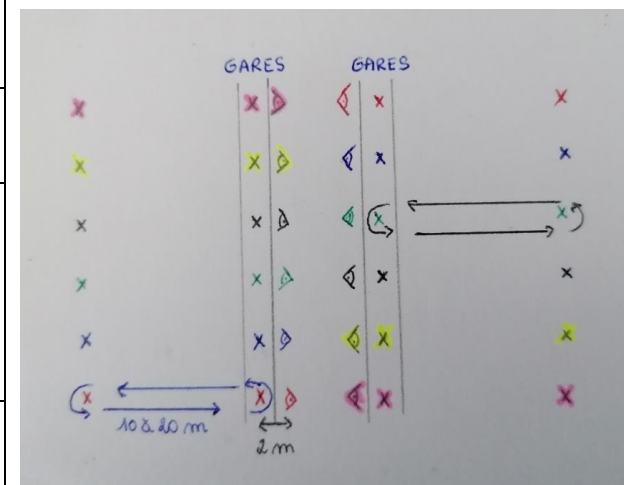 GARES GARES
10 à 20 m
2 m